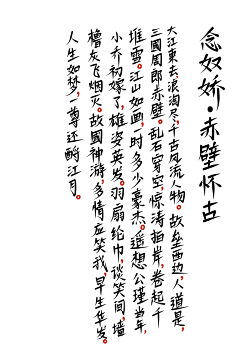 念奴娇·赤壁怀古
大江東去,浪淘尽,千古风流人物。故垒西边,人道是,
三國周郎赤壁。乱石穿空,惊涛拍岸,卷起千
堆雪。江山如画,一时多少豪杰。遥想公瑾当年,
小乔初嫁了,雄姿英发。羽扇纶巾,谈笑间,墙
橹灰飞烟灭。故國神游,多情应笑我,早生华发。
人生如梦,一尊还酹江月。